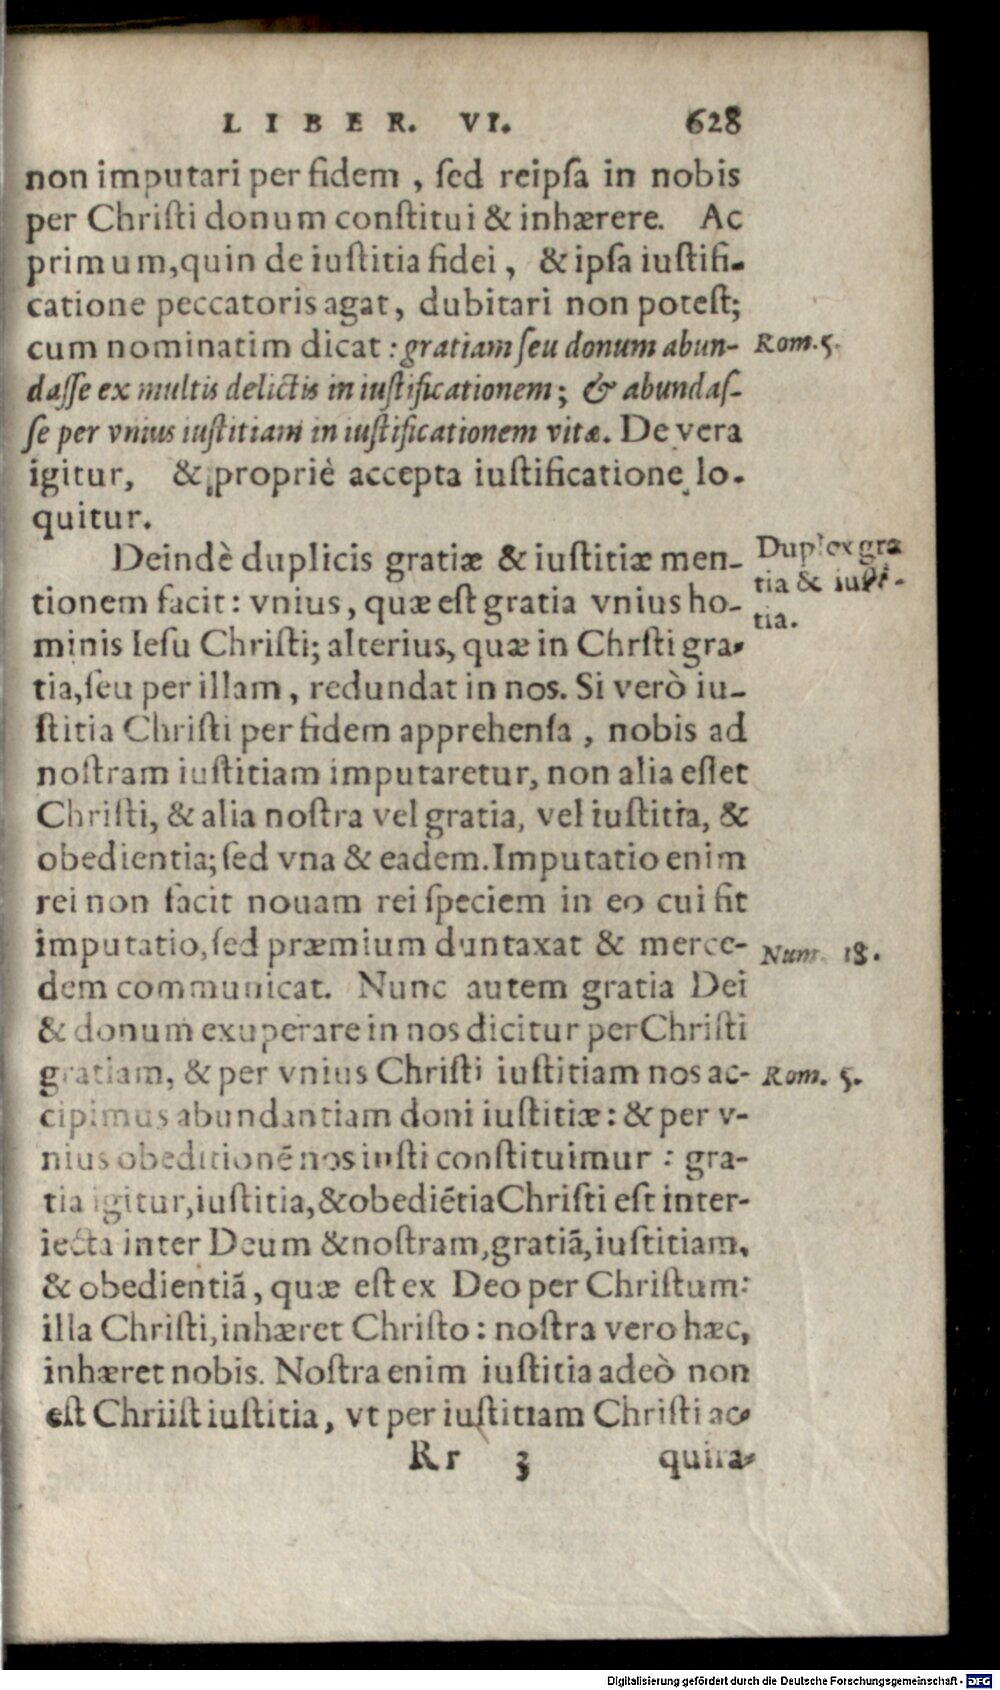 LIBER. VI. 628
non imputari per fidem , ſed reipſa in nobis
per Chriſti donum conſtitui & inhærere. Ac
primum,quin de iuſtitia fidei , & ipſa iuſtifi-
catione peccatoris agat, dubitari non poteſt;
cum nominatim dicat : gratiam ſeu donum abun- Rom. 5.
daſſe ex multis delictis in iuſtificationem ; & abundaſ-
ſe per vnius iuſtitiam in iuſtificationem vitæ. De vera
igitur, & propriè accepta iuſtificatione lo-
quitur.
Deindè duplicis gratiæ & iuſtitiæ men- Duplex gra
tionem facit : vnius, quæ eſt gratia vnius ho- tia & iuſti-
minis Ieſu Chriſti; alterius, quæ in Chrſti gra- tia.
tia,ſeu per illam , redundat in nos. Si verò iu-
ſtitia Chriſti per fidem apprehenſa , nobis ad
noſtram iuſtitiam imputaretur, non alia eſſet
Chriſti, & alia noſtra vel gratia, vel iuſtitia, &
obedientia; ſed vna & eadem. Imputatio enim
rei non facit nouam rei ſpeciem in eo cui fit
imputatio, ſed præmium duntaxat & merce- Num. 18.
dem communicat. Nunc autem gratia Dei
& donum exuperare in nos dicitur per Chriſti
gratiam, & per vnius Chriſti iuſtitiam nos ac- Rom. 5.
cipimus abundantiam doni iuſtitiæ : & per v-
nius obeditionē nos iuſti conſtituimur : gra-
tia igitur, iuſtitia, & obediētia Chriſti eſt inter-
iecta inter Deum & noſtram, gratiā, iuſtitiam,
& obedientiā, quæ eſt ex Deo per Chriſtum:
illa Chriſti, inhæret Chriſto : noſtra vero hæc,
inhæret nobis. Noſtra enim iuſtitia adeò non
eſt Chriiſt iuſtitia, vt per iuſtitiam Chriſti ac-
Rr 3 quira-
Digitalisierung gefördert durch die Deutsche Forschungsgemeinschaft - DFG